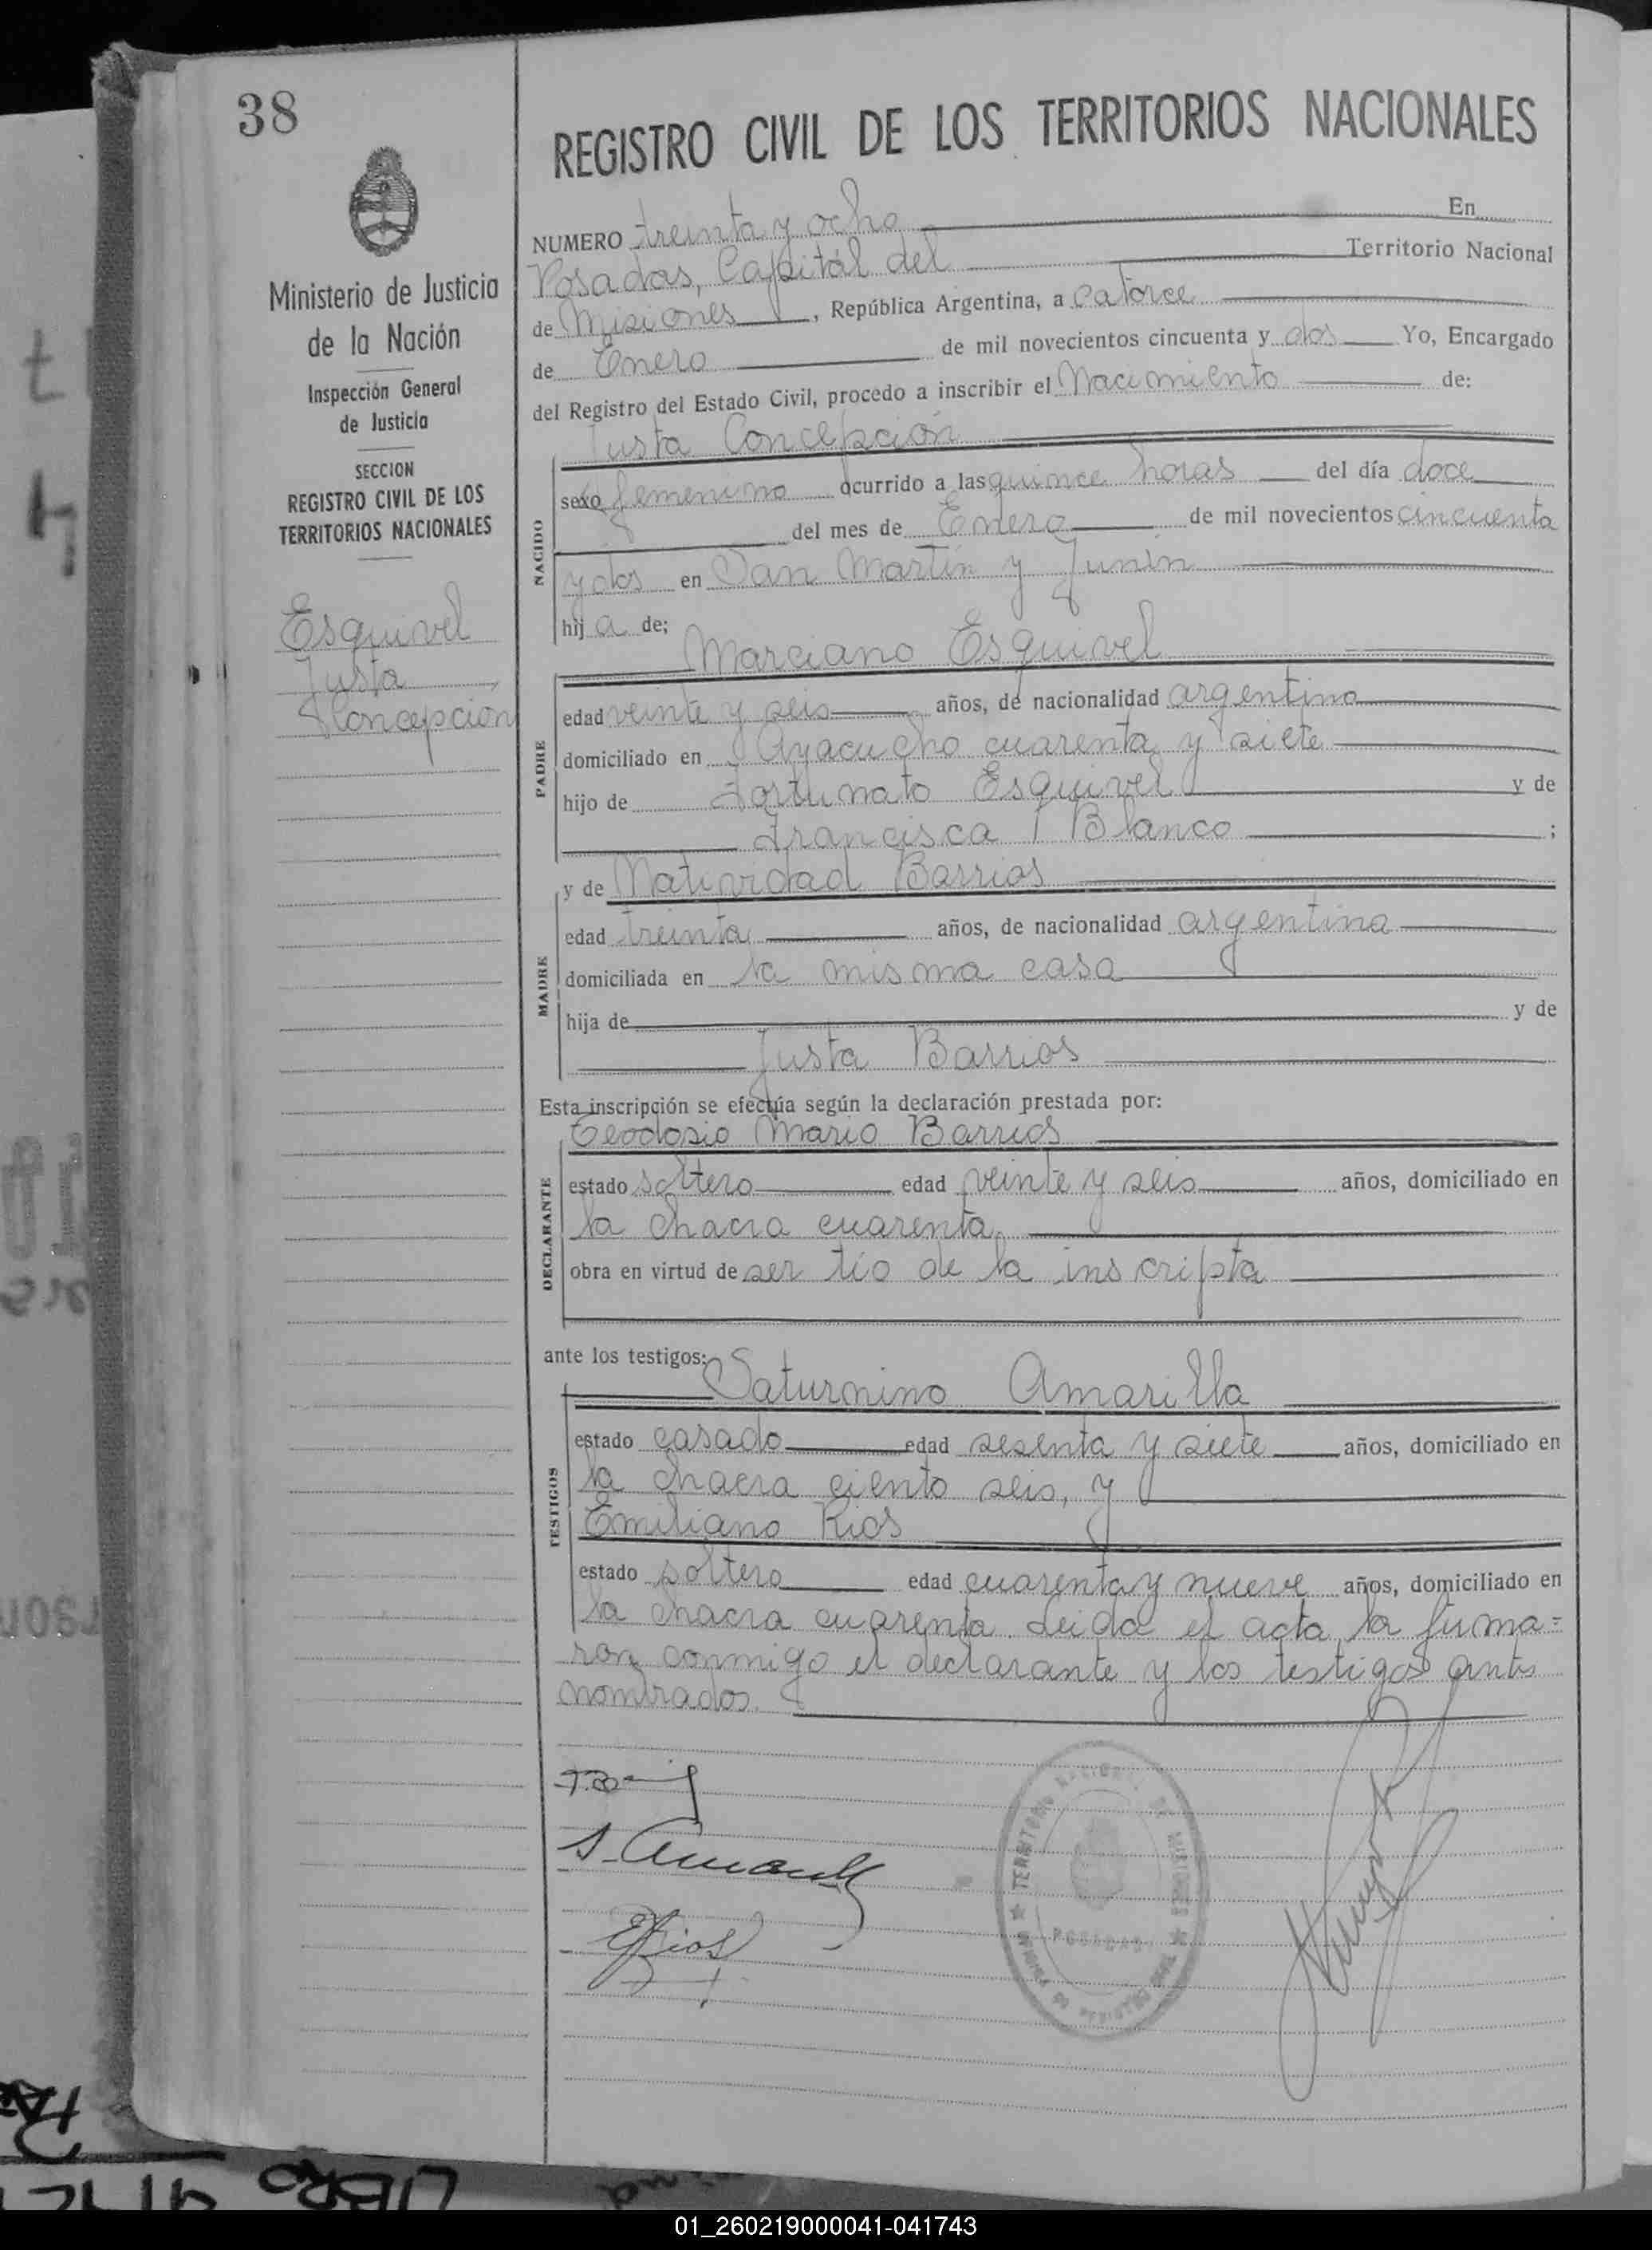 38
Ministerio de Justicia
de la Nación
Inspección General
de Justicia
SECCION
REGISTRO CIVIL DE LOS
TERRITORIOS NACIONALES
Esquivel
Justa
Concepcion
REGISTRO CIVIL DE LOS TERRITORIOS NACIONALES
NUMERO treinta y ocho En
Posadas, Capital del Territorio Nacional
de Misiones, República Argentina, a catorce
de Enero de mil novecientos cincuenta y dos Yo, Encargado
del Registro del Estado Civil, procedo a inscribir el Nacimiento de:
Justa Concepción
NACIDO
sexo femenino ocurrido a las quince horas del día doce
del mes de Enero de mil novecientos cincuenta
y dos en San Martín y Junín
hija de;
Marciano Esquivel
PADRE
edad veinte y seis años, de nacionalidad argentino
domiciliado en Ayacucho cuarenta y siete
hijo de Fortunato Esquivel y de
Francisca Blanco ;
y de Natividad Barrios
MADRE
edad treinta años, de nacionalidad argentina
domiciliada en la misma casa
hija de y de
Justa Barrios
Esta inscripción se efectúa según la declaración prestada por:
Teodosio Mario Barrios
DECLARANTE
estado soltero edad veinte y seis años, domiciliado en
la chacra cuarenta
obra en virtud de ser tío de la inscripta
ante los testigos:
Saturnino Amarilla
TESTIGOS
estado casado edad sesenta y siete años, domiciliado en
la chacra ciento seis, y
Emiliano Rios
estado soltero edad cuarenta y nueve años, domiciliado en
la chacra cuarenta. Leida el acta, la firma=
ron conmigo el declarante y los testigos antes
nombrados.
E Rios
TERRITORIO NACIONAL DE MISIONES
POSADAS
LIBRO
01_260219000041-041743